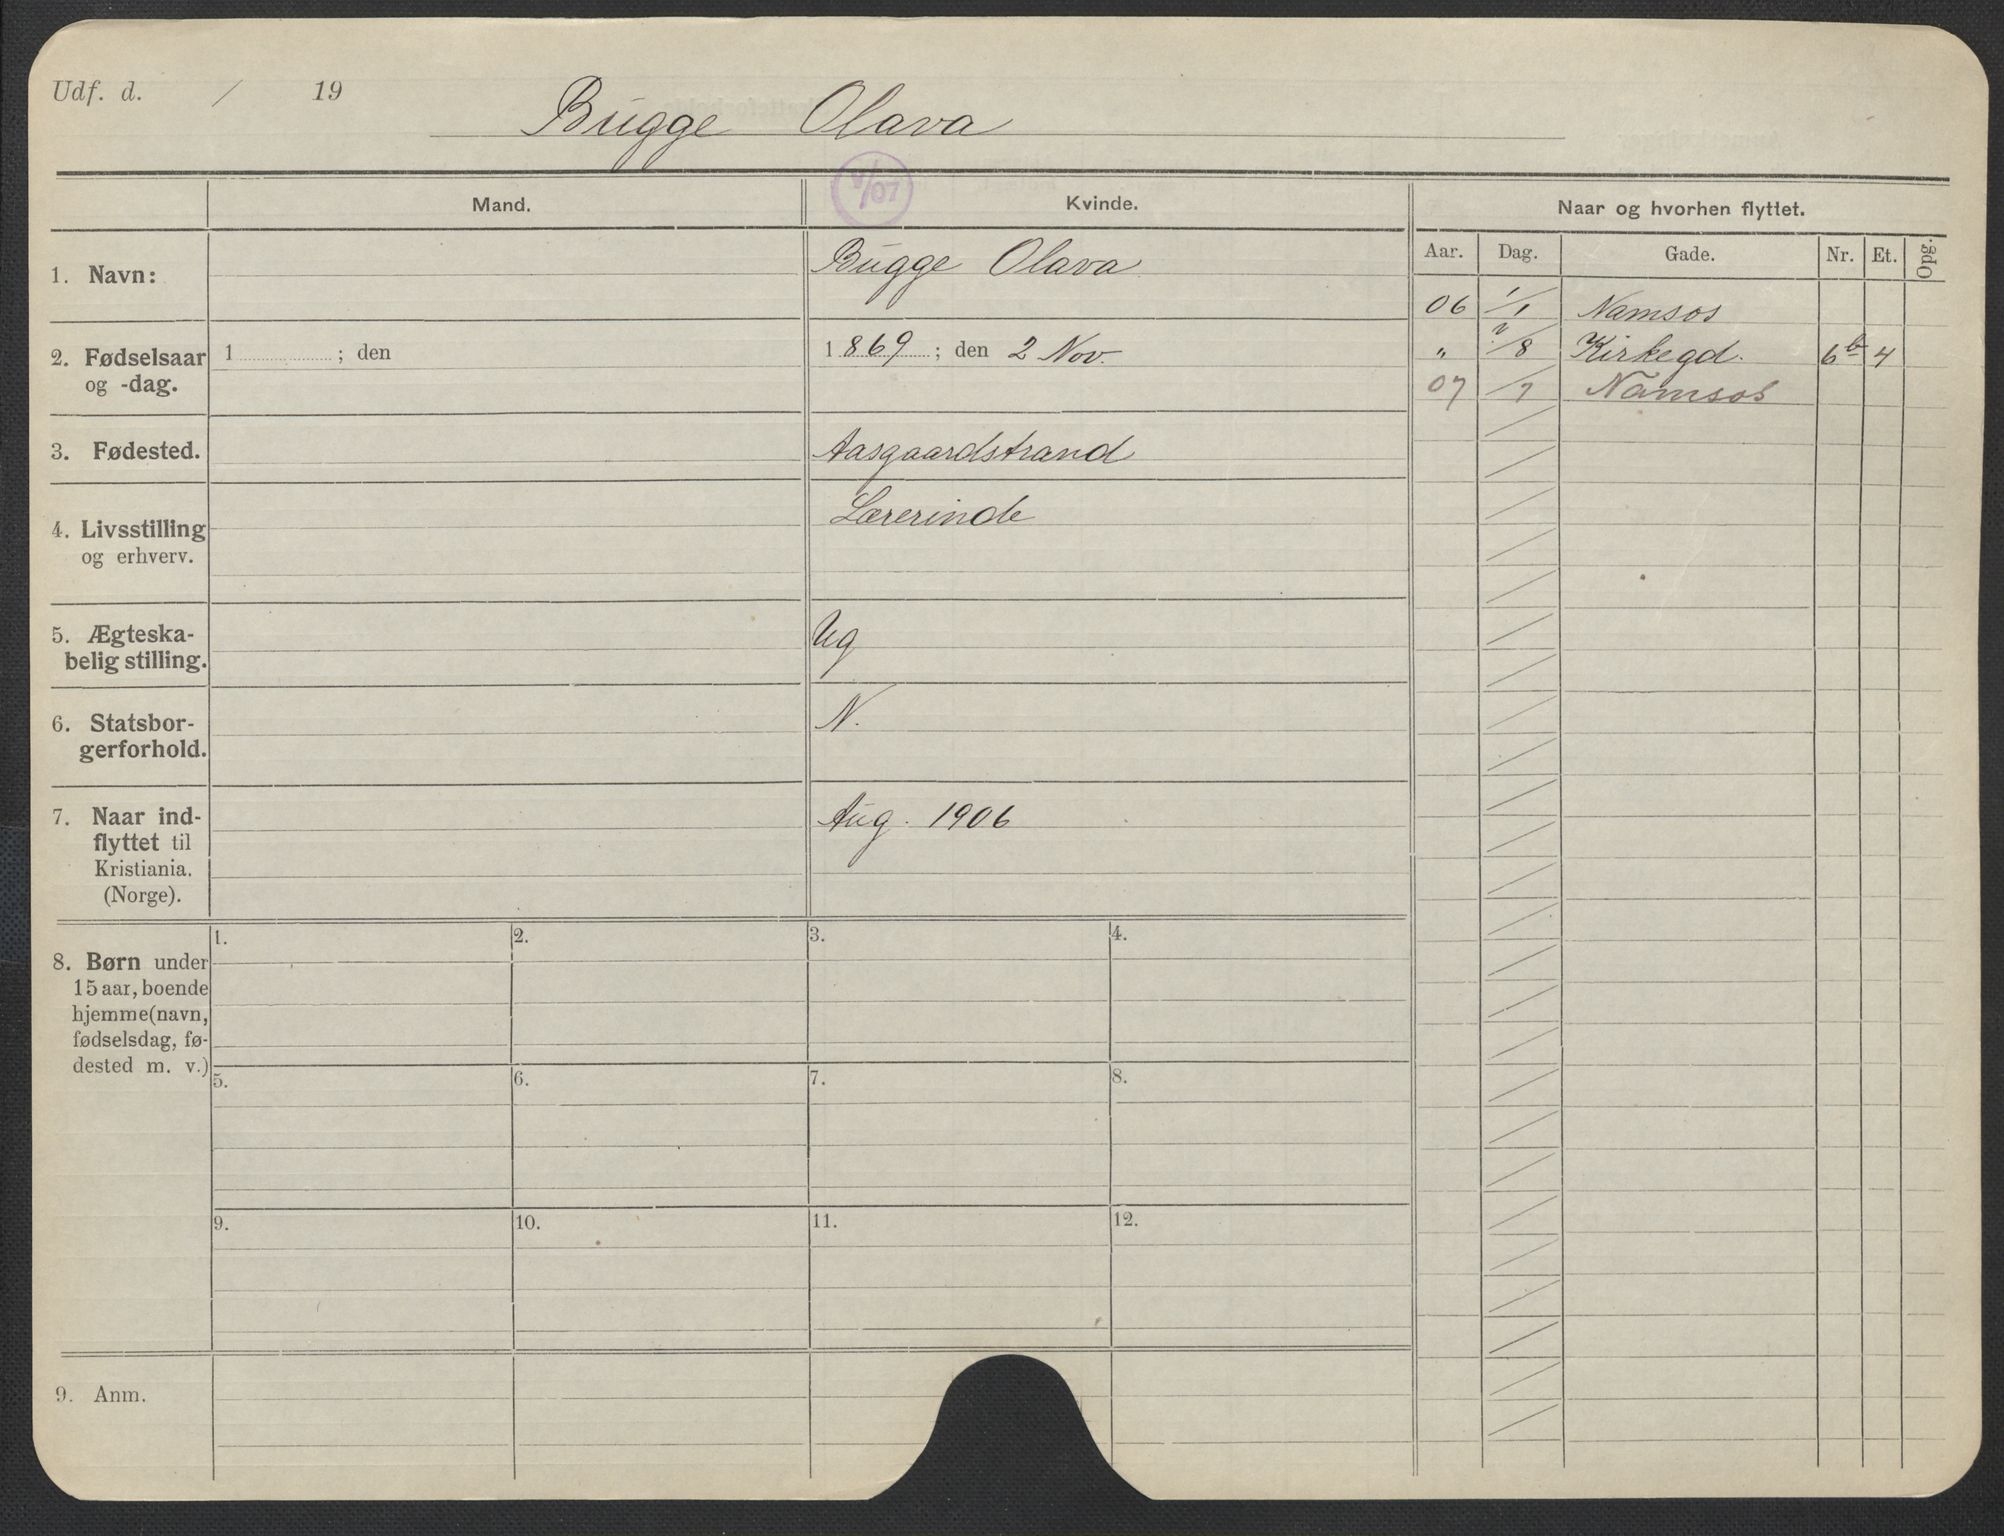 Udf. d. / 19
Bugge Olava
V/07
Mand.
Kvinde.
Naar og hvorhen flyttet.
Aar. Dag. Gade. Nr. Et. Opg.
1. Navn:
Bugge Olava
06 1/1 Namsos
2. Fødselsaar
og -dag.
1 ; den
1 869 ; den 2 Nov.
„ /8 Kirkegd. 6b 4
07 /7 Namsos
3. Fødested.
Aasgaardstrand
4. Livsstilling
og erhverv.
Lærerinde
5. Ægteska-
belig stilling.
Ug
6. Statsbor-
gerforhold.
N.
7. Naar ind-
flyttet til
Kristiania.
(Norge).
Aug. 1906
8. Børn under
15 aar, boende
hjemme (navn,
fødselsdag, fø-
dested m. v.)
1. 2. 3. 4.
5. 6. 7. 8.
9. 10. 11. 12.
9. Anm.